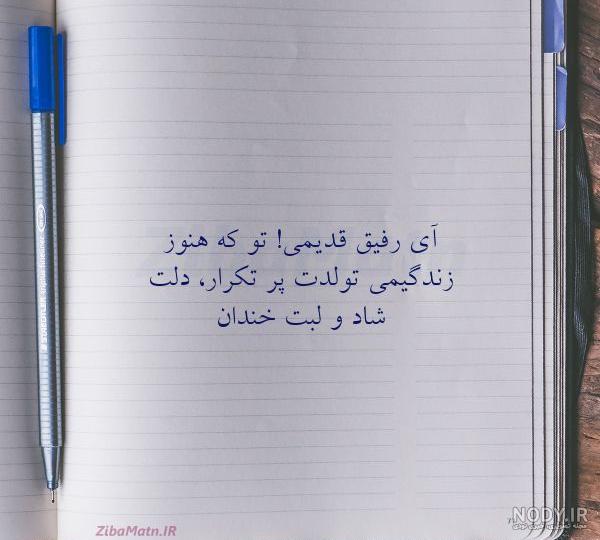 آی رفیق قدیمی! تو که هنوز
زندگیمی تولدت پر تکرار، دلت
شاد و لبت خندان
ZibaMatn.IR
NODY.IR